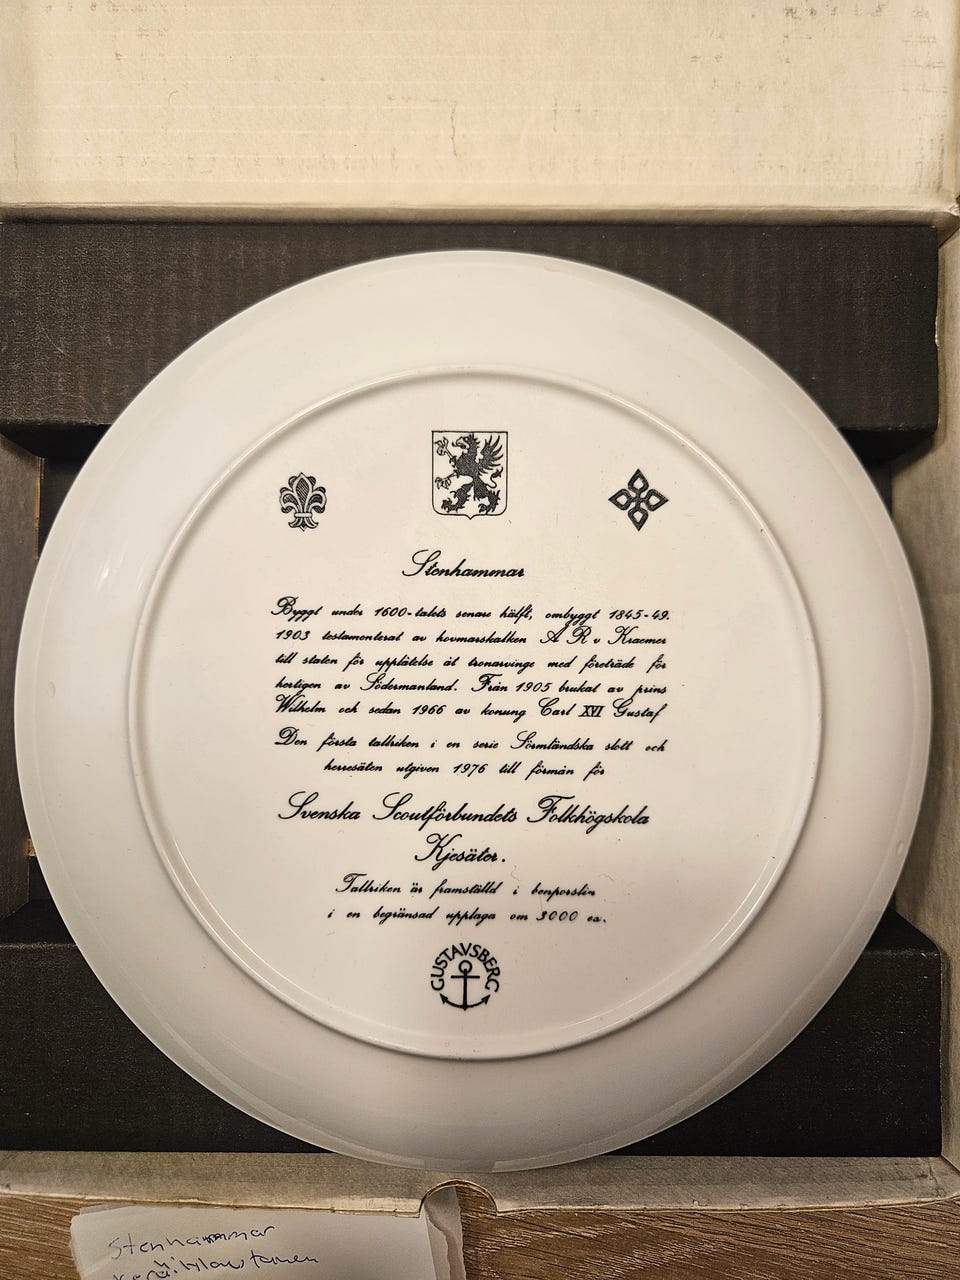 Stenhammar
Byggt under 1600-talets senare hälft, ombyggt 1845-49.
1903 testamenterat av hovmarskalken A R v Kraemer
till staten för upplåtelse åt tronarvinge med företräde för
hertigen av Södermanland. Från 1905 brukat av prins
Wilhelm och sedan 1966 av konung Carl XVI Gustaf
Den första tallriken i en serie Sörmländska slott och
herresäten utgiven 1976 till förmån för
Svenska Scoutförbundets Folkhögskola
Kjesäter.
Tallriken är framställd i benporslin
i en begränsad upplaga om 3000 ex.
GUSTAVSBERG
Stenhammar